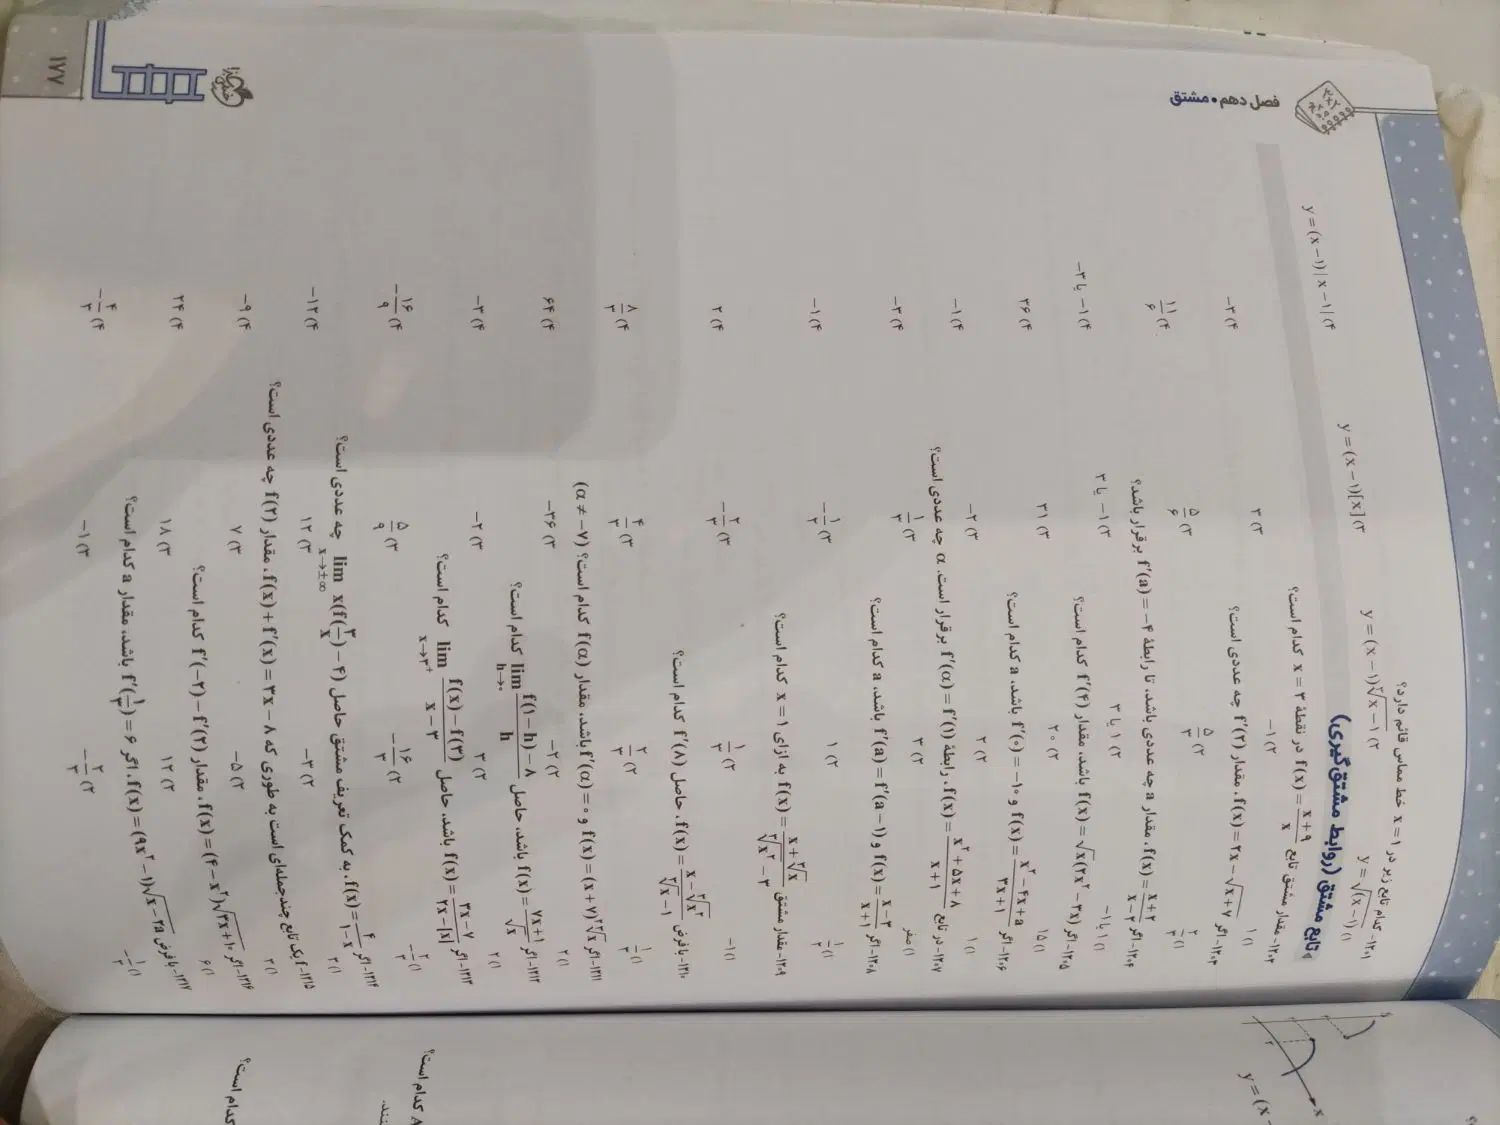 فصل دهم • مشتق
۱۲۰۱- کدام تابع زیر در x = ۱ خط مماس قائم دارد؟
۱) y = √(x − ۱)
۲) y = (x − ۱)∛(x − ۱)
۳) y = (x − ۱)[x]
۴) y = (x − ۱)|x − ۱|
تابع مشتق (روابط مشتق‌گیری)
مقدار مشتق تابع f(x) = (x + ۹)/x در نقطهٔ x = ۳ کدام است؟
۱) ۱ ۲) −۱ ۳) ۳ ۴) −۳
۱۲۰۳- اگر f(x) = ۲x − √(x + ۷)، مقدار f′(۲) چه عددی است؟
۱) ۲/۳ ۲) ۵/۳ ۳) ۵/۶ ۴) ۱۱/۶
۱۲۰۴- اگر f(x) = (x + ۲)/(x − ۲)، مقدار a چه عددی باشد، تا رابطهٔ f′(a) = −۴ برقرار باشد؟
۱) ۱ یا −۱ ۲) ۱ یا ۳ ۳) −۱ یا ۳ ۴) −۱ یا −۳
۱۲۰۵- اگر f(x) = √x(۲x² − ۳x) باشد، مقدار f′(۴) کدام است؟
۱) ۱۵ ۲) ۲۰ ۳) ۳۱ ۴) ۳۶
۱۲۰۶- اگر f(x) = (x² − ۴x + a)/(۳x + ۱) و f′(۰) = −۱۰ باشد، a کدام است؟
۱) ۱ ۲) ۲ ۳) −۲ ۴) −۱
۱۲۰۷- در تابع f(x) = (x² + ۵x + ۸)/(x + ۱)، رابطهٔ f′(α) = f′(۱) برقرار است. α چه عددی است؟
۱) صفر ۲) ۳ ۳) ۱/۳ ۴) −۳
۱۲۰۸- اگر f(x) = (x − ۳)/(x + ۱) و f′(a) = f′(a − ۱) باشد، a کدام است؟
۱) ۱/۲ ۲) ۱ ۳) −۱/۲ ۴) −۱
۱۲۰۹- مقدار مشتق f(x) = (x + ∛x)/(∛x² − ۳) به ازای x = ۱ کدام است؟
۱) −۱ ۲) ۱/۳ ۳) −۲/۳ ۴) ۲
۱۲۱۰- با فرض f(x) = (x − ∛x²)/(∛x − ۱)، حاصل f′(۸) کدام است؟
۱) ۱/۳ ۲) ۲/۳ ۳) ۴/۳ ۴) ۸/۳
۱۲۱۱- اگر f(x) = (x + ۷)²∛x و f′(α) = ۰ باشد، مقدار f(α) کدام است؟ (α ≠ −۷)
۱) ۲ ۲) −۲ ۳) −۳۶ ۴) ۶۴
۱۲۱۲- اگر f(x) = (۷x + ۱)/√x باشد، حاصل lim h→۰ (f(۱ − h) − ۸)/h کدام است؟
۱) ۲ ۲) ۳ ۳) −۲ ۴) −۳
۱۲۱۳- اگر f(x) = (۳x − ۷)/(۲x − [x]) باشد، حاصل lim x→۳⁺ (f(x) − f(۳))/(x − ۳) کدام است؟
۲) −۱۶/۳ ۳) ۵/۹ ۴) −۱۶/۹
۱۲۱۴- اگر f(x) = ۴/(۱ − x)، به کمک تعریف مشتق حاصل lim x→±∞ x(f(۳/x) − ۴) چه عددی است؟
۱) ۳ ۲) −۳ ۳) ۱۲ ۴) −۱۲
۱۲۱۵- f یک تابع چندجمله‌ای است به طوری که f(x) + f′(x) = ۳x − ۸، مقدار f(۲) چه عددی است؟
۲) −۵ ۳) ۷ ۴) −۹
۱۲۱۶- اگر f(x) = (۴ − x²)√(۳x + ۱۰)، مقدار f′(−۲) − f′(۲) کدام است؟
۱) ۶ ۲) ۱۲ ۳) ۱۸ ۴) ۲۴
۱۲۱۷- با فرض f(x) = (۹x² − ۱)√(x − ۲a)، اگر f′(۱/۳) = ۶ باشد، مقدار a کدام است؟
۱) −۱/۳ ۲) −۲/۳ ۳) −۱ ۴) −۴/۳
۱۷۷